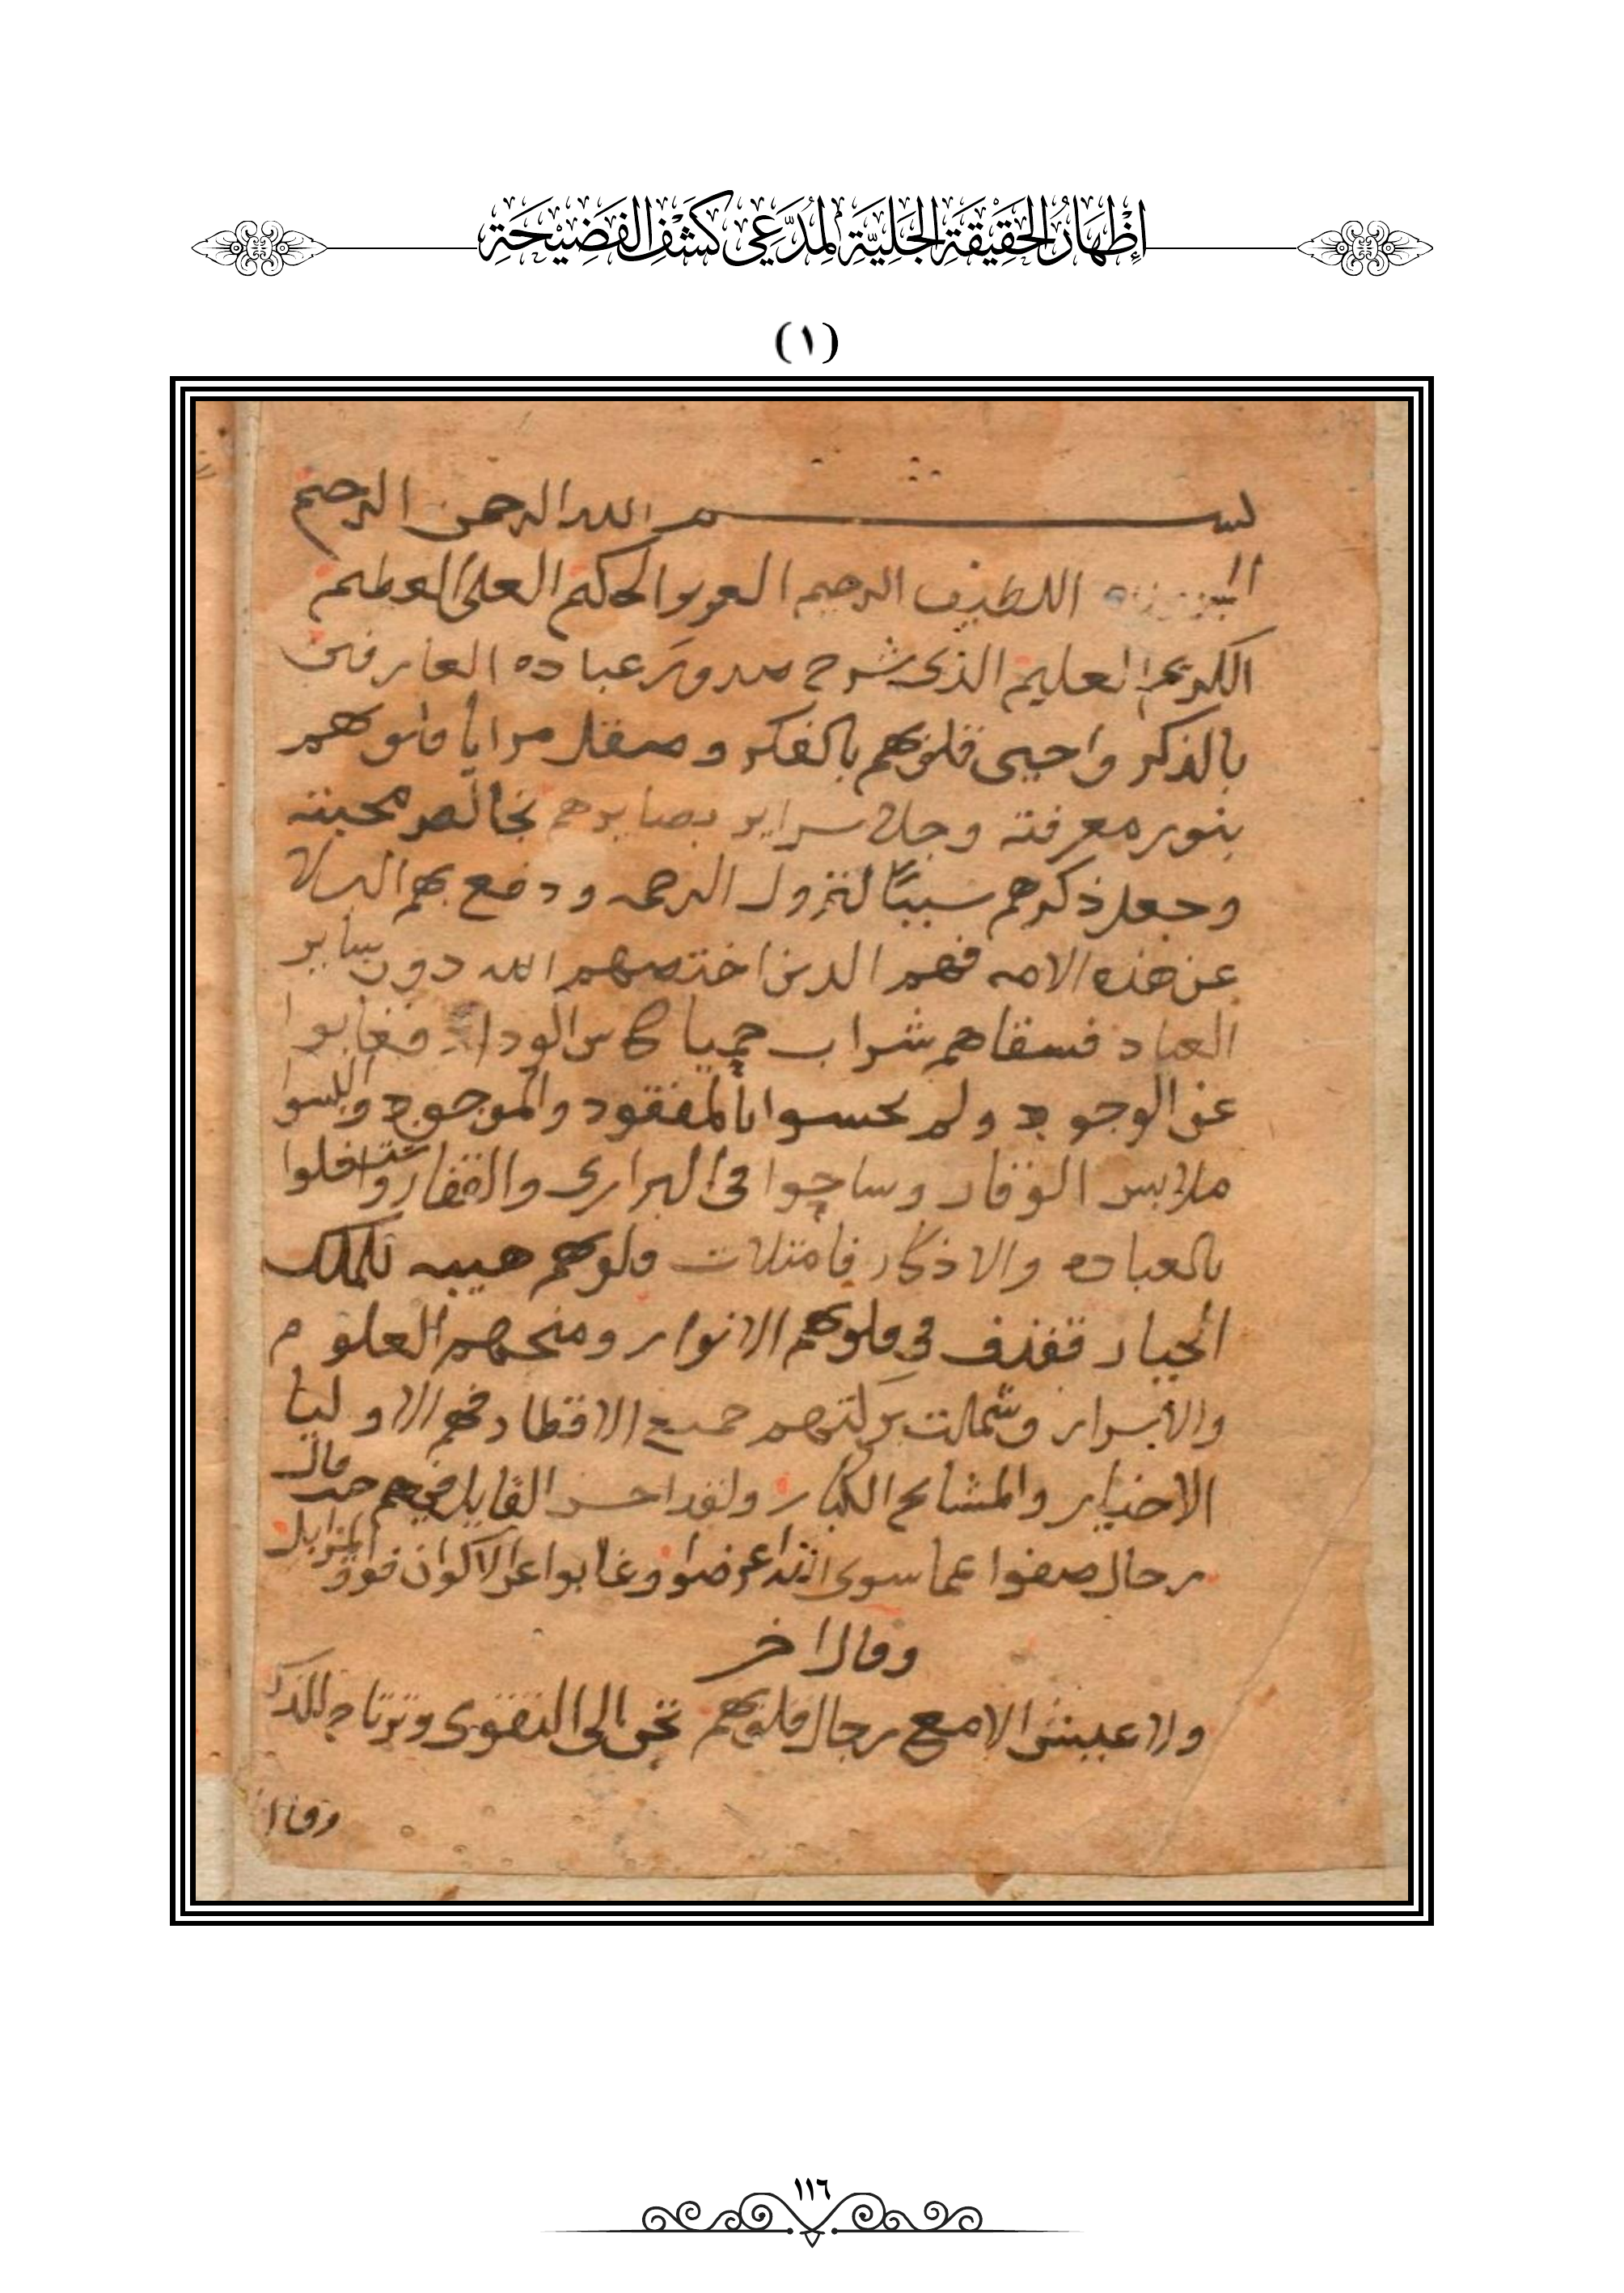 إِظْهَارُ الحَقِيْقَةِ الجَلِيَّةِ لِمُدَّعِي كَشْفِ الفَضِيْحَةِ
(١)
بسم الله الرحمن الرحيم
اللطيف الرحيم العزيز الحكيم العلي العظيم
الكريم العليم الذى شرح صدور عباده العارفين
بالذكر واحيى قلوبهم بالفكر وصقل مرايا قلوبهم
بنور معرفته وجلا سراير بصايرهم بخالص محبته
وجعل ذكرهم سببًا لنزول الرحمه ودفع بهم البلا
عن هذه الامه فهم الدين اختصهم الله دون ساير
العباد فسقاهم شراب حميا كاس الوداد فغابوا
عن الوجود ولم يحسوا بالمفقود والموجود والبسوا
ملابس الوقار وساحوا فى البرارى والقفار واشتغلوا
بالعباده والاذكار فامتلات قلوبهم هيبه للملك
الجبار فقذف فى قلوبهم الانوار ومنحهم العلوم
والاسرار وشملت بركتهم جميع الاقطار فهم الاوليا
الاخيار والمشايخ الكبار ولقد احسن القايل فيهم حيث قال
رجال صفوا عما سوى الله اعرضوا وغابوا عن الاكوان فوق المزابل
وقال اخر
ولا عيش الا مع رجال قلوبهم تحن الى التقوى وترتاح للذكر
وقال
١١٦